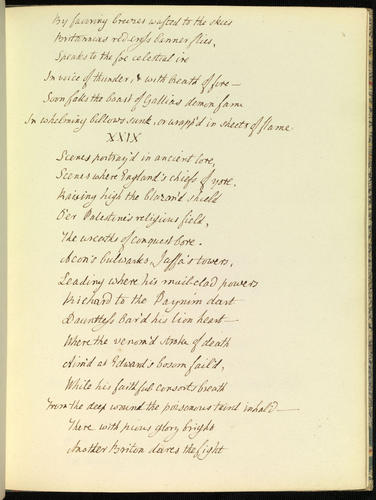 By favoring breezes wafted to the skies
Britannia's red-cross banner flies,
Speaks to the foe celestial ire
In voice of thunder, & with breath of fire —
Soon falls the boast of Gallia's demon fame
In whelming billows sunk, or wrapp'd in sheets of flame
XXIX
Scenes portray'd in ancient lore,
Scenes where England's chiefs of yore,
Raising high the blazon'd shield
O'er Palestine's religious field,
The wreaths of conquest bore.
Acon's bulwarks, Jaffa's towers,
Leading where his mail-clad powers
Richard to the Paynim dart
Dauntless bar'd his lion heart —
Where the venom'd stroke of death
Aim'd at Edward's bosom fail'd,
While his faithful consort's breath
From the deep wound the poisonous inhal'd —
There with pious glory bright
Another Briton dares the fight